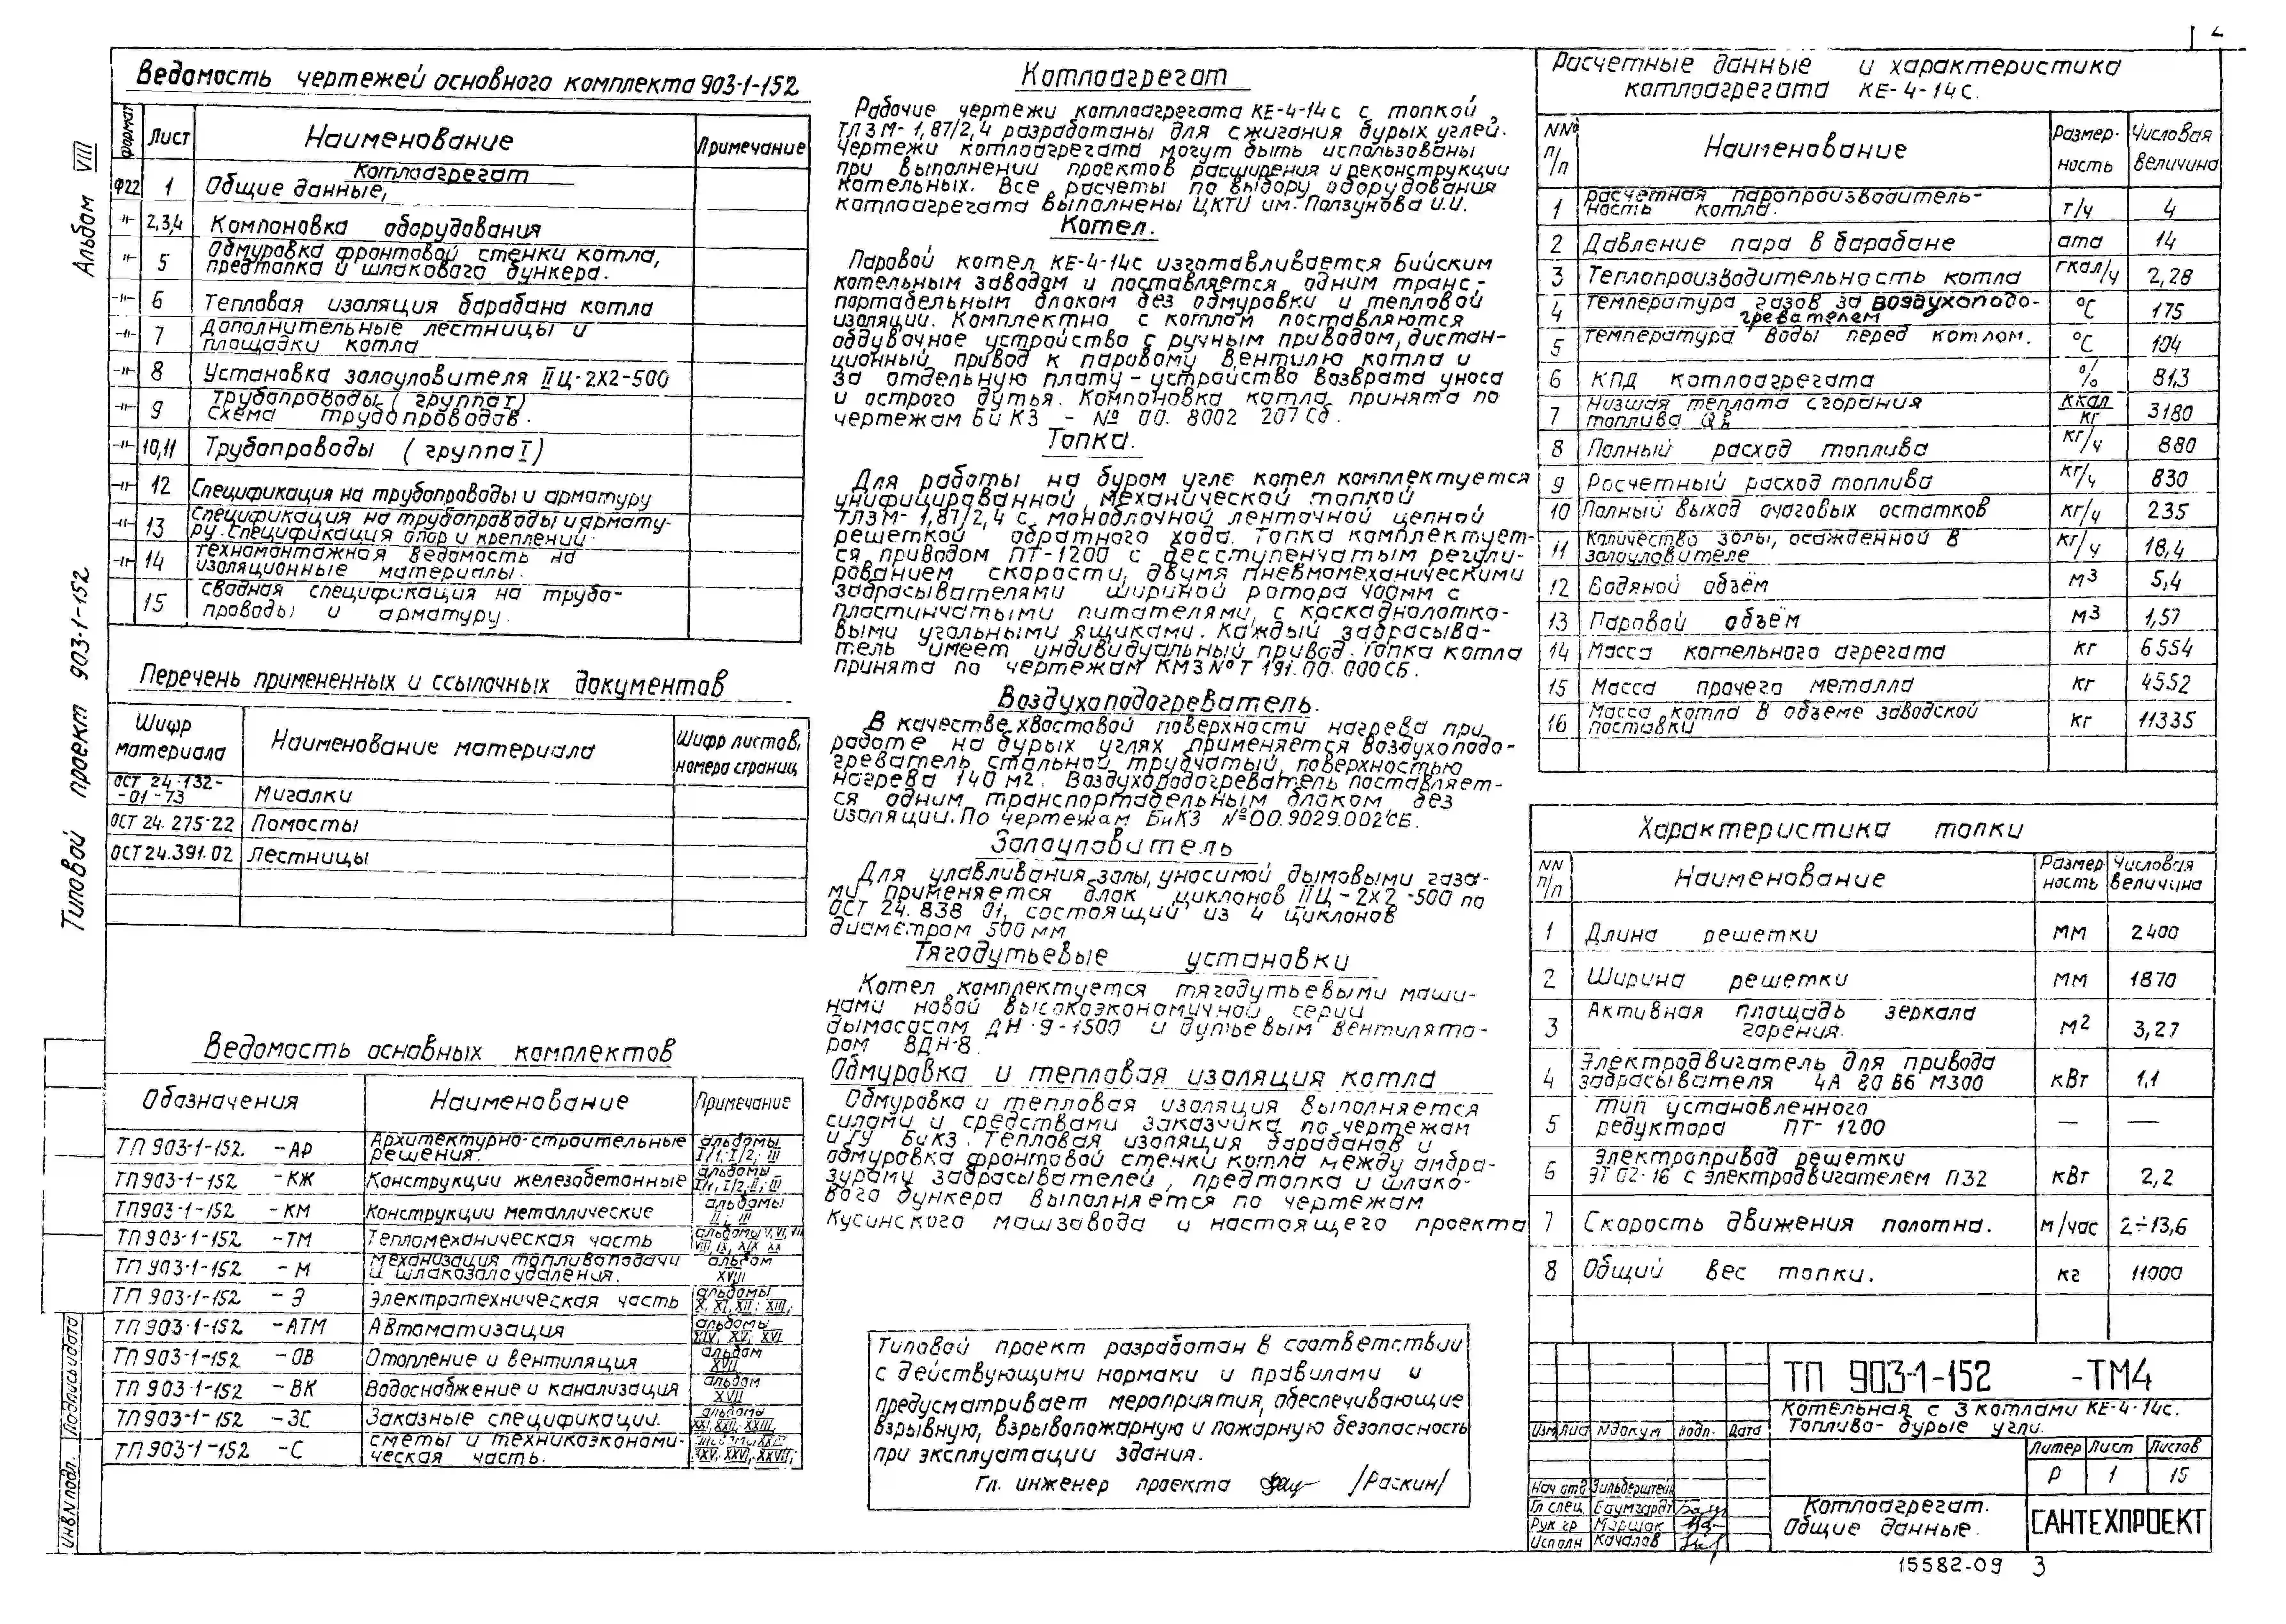 Альбом VIII
Типовой проект 903-1-152
Ведомость чертежей основного комплекта 903-1-152
Формат Лист Наименование Примечание
Котлоагрегат
Ф22 1 Общие данные,
-"- 2,3,4 Компоновка оборудования
-"- 5 Обмуровка фронтовой стенки котла,
предтопка и шлакового бункера.
-"- 6 Тепловая изоляция барабана котла
-"- 7 Дополнительные лестницы и
площадки котла
-"- 8 Установка золоуловителя IIЦ-2х2-500
-"- 9 Трубопроводы (группа I)
схема трубопроводов.
-"- 10,11 Трубопроводы (группа I)
-"- 12 Спецификация на трубопроводы и арматуру
-"- 13 Спецификация на трубопроводы и армату-
ру. Спецификация опор и креплений.
-"- 14 Техномонтажная ведомость на
изоляционные материалы.
15 Сводная спецификация на трубо-
проводы и арматуру.
Перечень примененных и ссылочных документов
Шифр материала Наименование материала Шифр листов, номера страниц
ОСТ 24.132-
-01-73 Мигалки
ОСТ 24.275-22 Помосты
ОСТ 24.391.02 Лестницы
Ведомость основных комплектов
Обозначения Наименование Примечание
ТП 903-1-152 -АР Архитектурно-строительные решения. альбомы I/1; I/2; III
ТП 903-1-152 -КЖ Конструкции железобетонные альбомы I/1, I/2; II; III
ТП 903-1-152 -КМ Конструкции металлические альбомы II; III
ТП 903-1-152 -ТМ Тепломеханическая часть альбомы V, VI, VII
VIII, IX, XIX XX
ТП 903-1-152 -М Механизация топливоподачи
и шлакозолоудаления. альбом XVIII
ТП 903-1-152 -Э Электротехническая часть альбомы X, XI, XII; XIII;
ТП 903-1-152 -АТМ Автоматизация альбомы XIV, XV; XVI
ТП 903-1-152 -ОВ Отопление и вентиляция альбом XVII
ТП 903-1-152 -ВК Водоснабжение и канализация альбом XVII
ТП 903-1-152 -ЗС Заказные спецификации. альбомы XXI, XXII, XXIII,
ТП 903-1-152 -С Сметы и техникоэкономи-
ческая часть. XXV, XXVI, XXVII;
Подпись и дата
Инв N подл.
Котлоагрегат
Рабочие чертежи котлоагрегата КЕ-4-14с с топкой
ТЛЗМ-1,87/2,4 разработаны для сжигания бурых углей.
Чертежи котлоагрегата могут быть использованы
при выполнении проектов расширения и реконструкции
котельных. Все расчеты по выбору оборудования
котлоагрегата выполнены ЦКТИ им. Ползунова И.И.
Котел.
Паровой котел КЕ-4-14с изготавливается Бийским
котельным заводом и поставляется одним транс-
портабельным блоком без обмуровки и тепловой
изоляции. Комплектно с котлом поставляются
обдувочное устройство с ручным приводом, дистан-
ционный привод к паровому вентилю котла и
за отдельную плату - устройство возврата уноса
и острого дутья. Компоновка котла принята по
чертежам БиКЗ - № 00. 8002 207 Сб.
Топка.
Для работы на буром угле котел комплектуется
унифицированной механической топкой
ТЛЗМ-1,87/2,4 с моноблочной ленточной цепной
решеткой обратного хода. Топка комплектует-
ся приводом ПТ-1200 с бесступенчатым регули-
рованием скорости, двумя пневмомеханическими
забрасывателями шириной ротора 400мм с
пластинчатыми питателями, с каскаднолотко-
выми угольными ящиками. Каждый забрасыва-
тель имеет индивидуальный привод. Топка котла
принята по чертежам КМЗ №Т 191.00.000СБ.
Воздухоподогреватель.
В качестве хвостовой поверхности нагрева при
работе на бурых углях применяется воздухоподо-
греватель стальной трубчатый, поверхностью
нагрева 140 м2. Воздухоподогреватель поставляет-
ся одним транспортабельным блоком без
изоляции. По чертежам БиКЗ №00.9029.002СБ.
Золоуловитель
Для улавливания золы, уносимой дымовыми газа-
ми применяется блок циклонов IIЦ-2х2-500 по
ОСТ 24.838 01, состоящий из 4 циклонов
диаметром 500 мм
Тягодутьевые установки
Котел комплектуется тягодутьевыми маши-
нами новой высокоэкономичной серии
дымососом ДН-9-1500 и дутьевым вентилято-
ром ВДН-8.
Обмуровка и тепловая изоляция котла
Обмуровка и тепловая изоляция выполняется
силами и средствами заказчика по чертежам
и ТУ БиКЗ. Тепловая изоляция барабанов и
обмуровка фронтовой стенки котла между амбра-
зурами забрасывателей, предтопка и шлако-
вого бункера выполняется по чертежам
Кусинского машзавода и настоящего проекта
Типовой проект разработан в соответствии
с действующими нормами и правилами и
предусматривает мероприятия, обеспечивающие
взрывную, взрывопожарную и пожарную безопасность
при эксплуатации здания.
Гл. инженер проекта /Раскин/
Расчетные данные и характеристика
котлоагрегата КЕ-4-14с.
NNº п/п Наименование Размерность Числовая величина
1 Расчетная паропроизводитель-
ность котла. т/ч 4
2 Давление пара в барабане ата 14
3 Теплопроизводительность котла гкал/ч 2,28
4 Температура газов за воздухоподо-
гревателем °С 175
5 Температура воды перед котлом. °С 104
6 КПД котлоагрегата % 81,3
7 Низшая теплота сгорания
топлива ккал/кг 3180
8 Полный расход топлива кг/ч 880
9 Расчетный расход топлива кг/ч 830
10 Полный выход очаговых остатков кг/ч 235
11 Количество золы, осажденной в
золоуловителе кг/ч 18,4
12 Водяной объём м3 5,4
13 Паровой объём м3 1,57
14 Масса котельного агрегата кг 6554
15 Масса прочего металла кг 4552
16 Масса котла в объеме заводской
поставки кг 11335
Характеристика топки
NN п/п Наименование Размерность Числовая величина
1 Длина решетки мм 2400
2 Ширина решетки мм 1870
3 Активная площадь зеркала
горения. м2 3,27
4 Электродвигатель для привода
забрасывателя 4А 80 В6 М300 кВт 1,1
5 Тип установленного
редуктора ПТ-1200 — —
6 Электропривод решетки
ЭТ 02-16 с электродвигателем П32 кВт 2,2
7 Скорость движения полотна. м/час 2÷13,6
8 Общий вес топки. кг 11000
ТП 903-1-152 -ТМ4
Котельная с 3 котлами КЕ-4-14с.
Топливо- бурые угли.
Изм Лист Nдокум Подп. Дата
Литер Лист Листов
Р 1 15
Нач отд Зильберштейн
Гл спец. Баумгардт
Рук гр Маршак
Исполн Качалов
Котлоагрегат.
Общие данные.
САНТЕХПРОЕКТ
15582-09 3